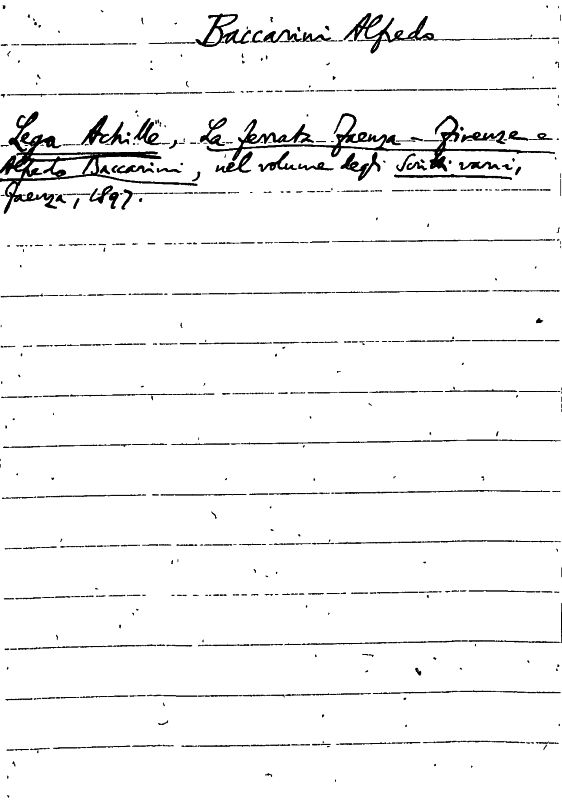 Baccarini Alfredo
Lega Achille, La ferrata Faenza - Firenze e
Alfredo Baccarini, nel volume degli Scritti varii,
Faenza, 1897.